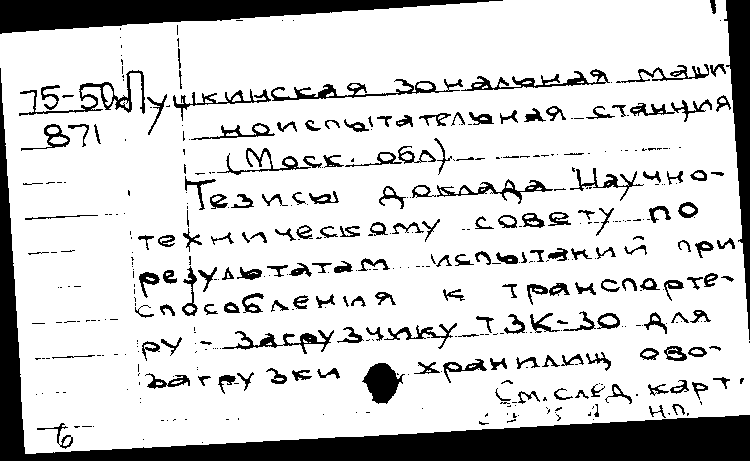 75-50к Пушкинская зональная маши-
871 ноиспытательная станция
(Моск. обл)
Тезисы доклада Научно-
техническому совету по
результатам испытаний при-
способления к транспорте-
ру - загрузчику ТЗК-30 для
загрузки хранилищ ово-
См. след. карт.
Н.П.
6